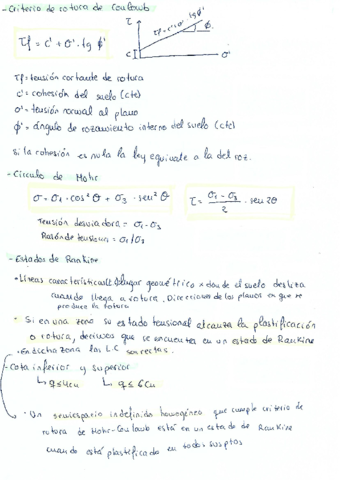 - Criterio de rotura de Coulomb
τf = c' + σ' · tg ϕ'
τ
τf = c' + σ' tg ϕ'
ϕ'
c
σ'
τf = tensión cortante de rotura
c' = cohesión del suelo (cte)
σ' = tensión normal al plano
ϕ' = ángulo de rozamiento interno del suelo (cte)
Si la cohesión es nula la ley equivale a la del roz.
- Círculo de Mohr
σ = σ1 · cos² θ + σ3 · sen² θ
τ = (σ1 - σ3)/2 · sen 2θ
Tensión desviadora = σ1 - σ3
Razón de tensiones = σ1/σ3
- Estados de Rankine
• Líneas características: lugar geométrico x donde el suelo desliza
cuando llega a rotura. Direcciones de los planos en que se
produce la rotura
• Si en una zona su estado tensional alcanza la plastificación
o rotura, decimos que se encuentra en un estado de Rankine
• En dicha zona las L.C son rectas.
- Cota inferior y superior
↳ q ≤ 4cu ↳ q ≤ 6cu
• Un semiespacio indefinido homogéneo que cumple criterio de
rotura de Mohr-Coulomb está en un estado de Rankine
cuando está plastificado en todos sus ptos